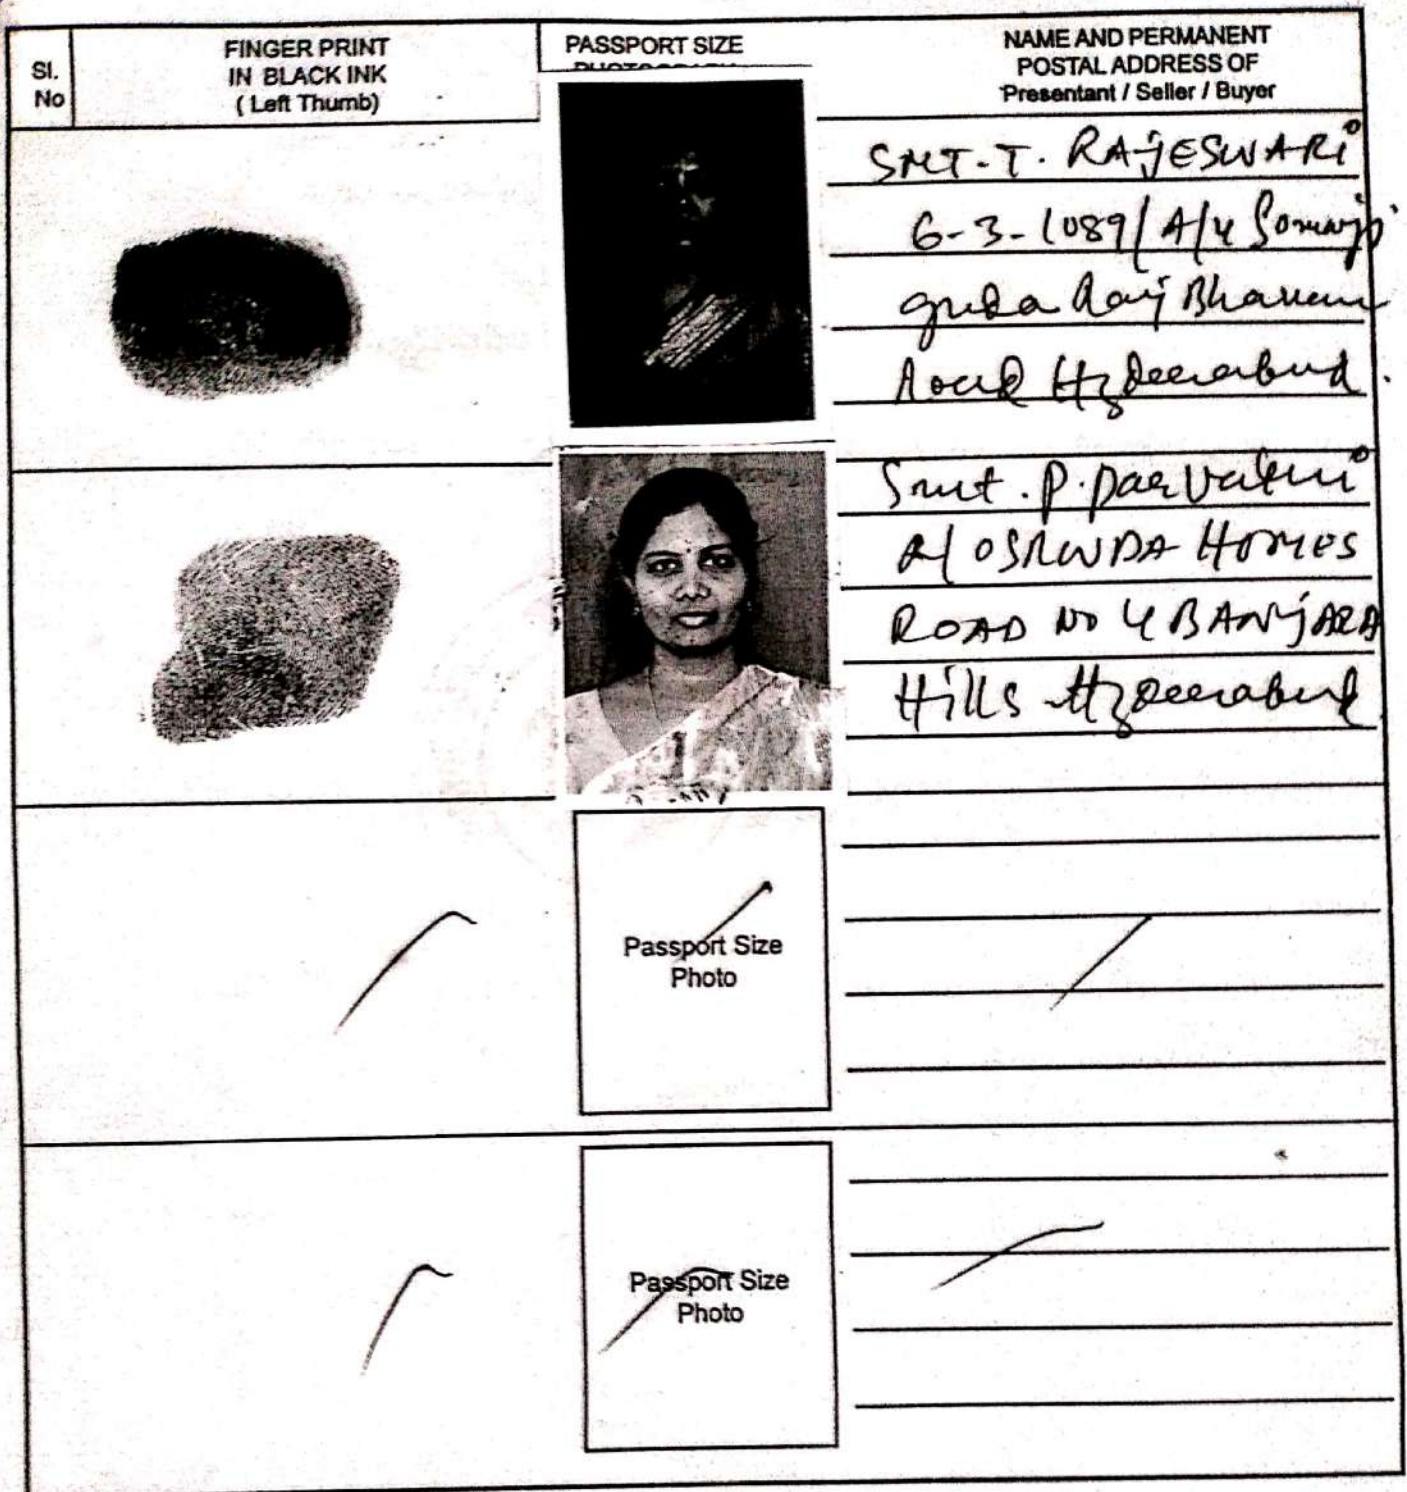 Sl.
No
FINGER PRINT
IN BLACK INK
( Left Thumb)
PASSPORT SIZE
PHOTOGRAPH
NAME AND PERMANENT
POSTAL ADDRESS OF
Presentant / Seller / Buyer
SMT. T. RAjESWARi
6-3-1089/A/4 Somaji
guda Raj Bhavan
Road Hyderabad.
Smt. P. Parvathi
HOMES
ROAD NO 4 BANjARA
Hills Hyderabad
Passport Size
Photo
Passport Size
Photo